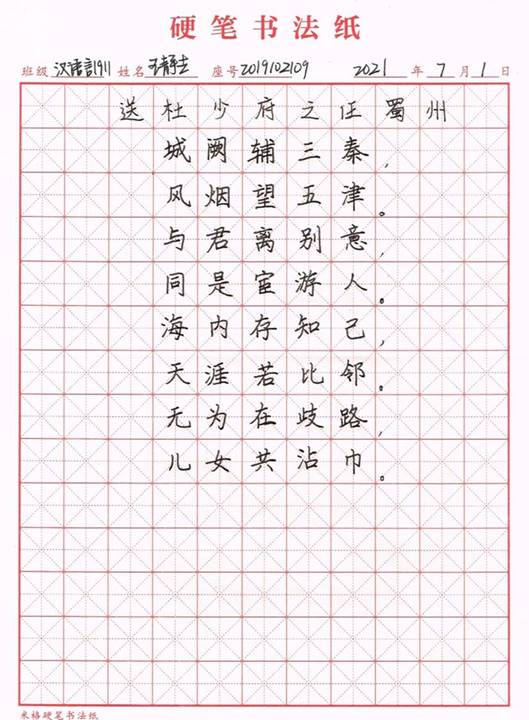 硬笔书法纸
班级 汉语言1911 姓名 王静 座号 2019102109 2021 年 7 月 1 日
送杜少府之任蜀州
城阙辅三秦，
风烟望五津。
与君离别意，
同是宦游人。
海内存知己，
天涯若比邻。
无为在歧路，
儿女共沾巾。
米格硬笔书法纸